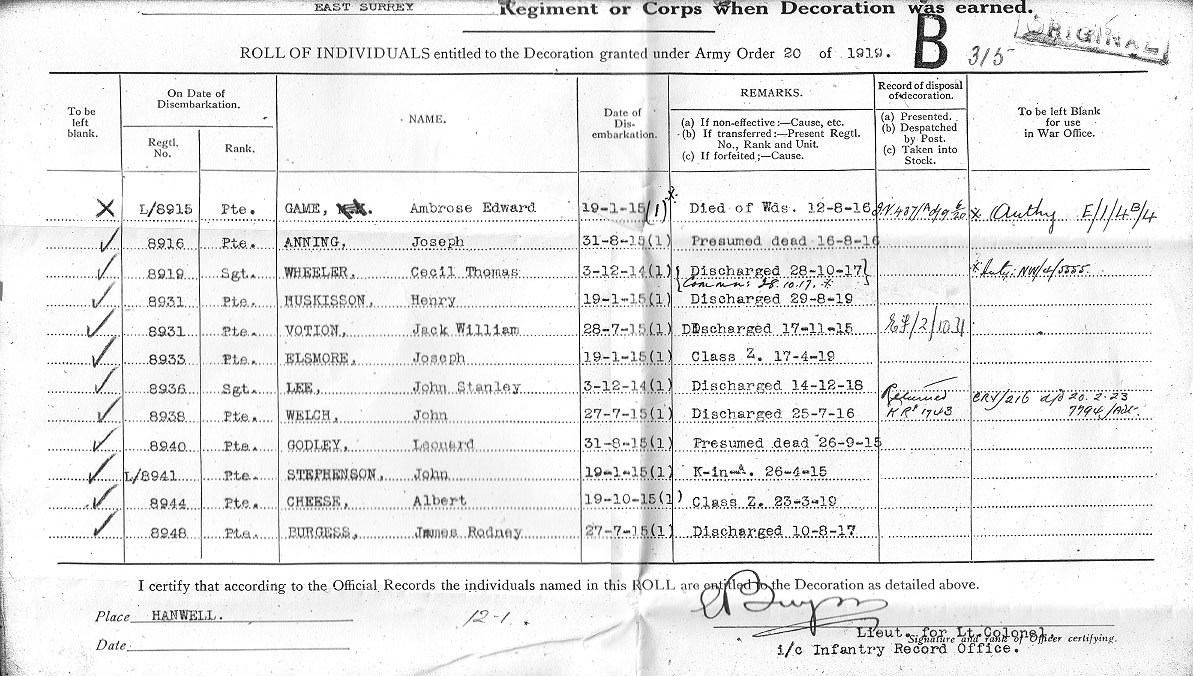 EAST SURREY Regiment or Corps when Decoration was earned.
ORIGINAL
B 315
ROLL OF INDIVIDUALS entitled to the Decoration granted under Army Order 20 of 1919.
To be left blank.
On Date of Disembarkation.
Regtl. No.
Rank.
NAME.
Date of Dis-embarkation.
REMARKS.
(a) If non-effective:—Cause, etc.
(b) If transferred:—Present Regtl. No., Rank and Unit.
(c) If forfeited;—Cause.
Record of disposal of decoration.
(a) Presented.
(b) Despatched by Post.
(c) Taken into Stock.
To be left Blank for use in War Office.
X L/8915 Pte. GAME, Ambrose Edward 19-1-15(1) Died of Wds. 12-8-16 * Authy E/1/4B/4
✓ 8916 Pte. ANNING, Joseph 31-8-15(1) Presumed dead 16-8-16
✓ 8919 Sgt. WHEELER, Cecil Thomas 3-12-14(1) Discharged 28-10-17
Commn: 28.10.17. *
✓ 8931 Pte. HUSKISSON, Henry 19-1-15(1) Discharged 29-8-19
✓ 8931 Pte. VOTION, Jack William 28-7-15(1) Discharged 17-11-15
✓ 8933 Pte. ELSMORE, Joseph 19-1-15(1) Class Z. 17-4-19
✓ 8936 Sgt. LEE, John Stanley 3-12-14(1) Discharged 14-12-18
✓ 8938 Pte. WELCH, John 27-7-15(1) Discharged 25-7-16 Returned 1743 CRV/216 d/d 20.2.23
✓ 8940 Pte. GODLEY, Leonard 31-8-15(1) Presumed dead 26-9-15
✓ L/8941 Pte. STEPHENSON, John 19-1-15(1) K-in-A. 26-4-15
✓ 8944 Pte. CHEESE, Albert 19-10-15(1) Class Z. 23-3-19
✓ 8948 Pte. BURGESS, James Rodney 27-7-15(1) Discharged 10-8-17
I certify that according to the Official Records the individuals named in this ROLL are entitled to the Decoration as detailed above.
Place HANWELL. 12-1.
Date
Lieut. for Lt.Colonel
Signature and rank of Officer certifying.
i/c Infantry Record Office.